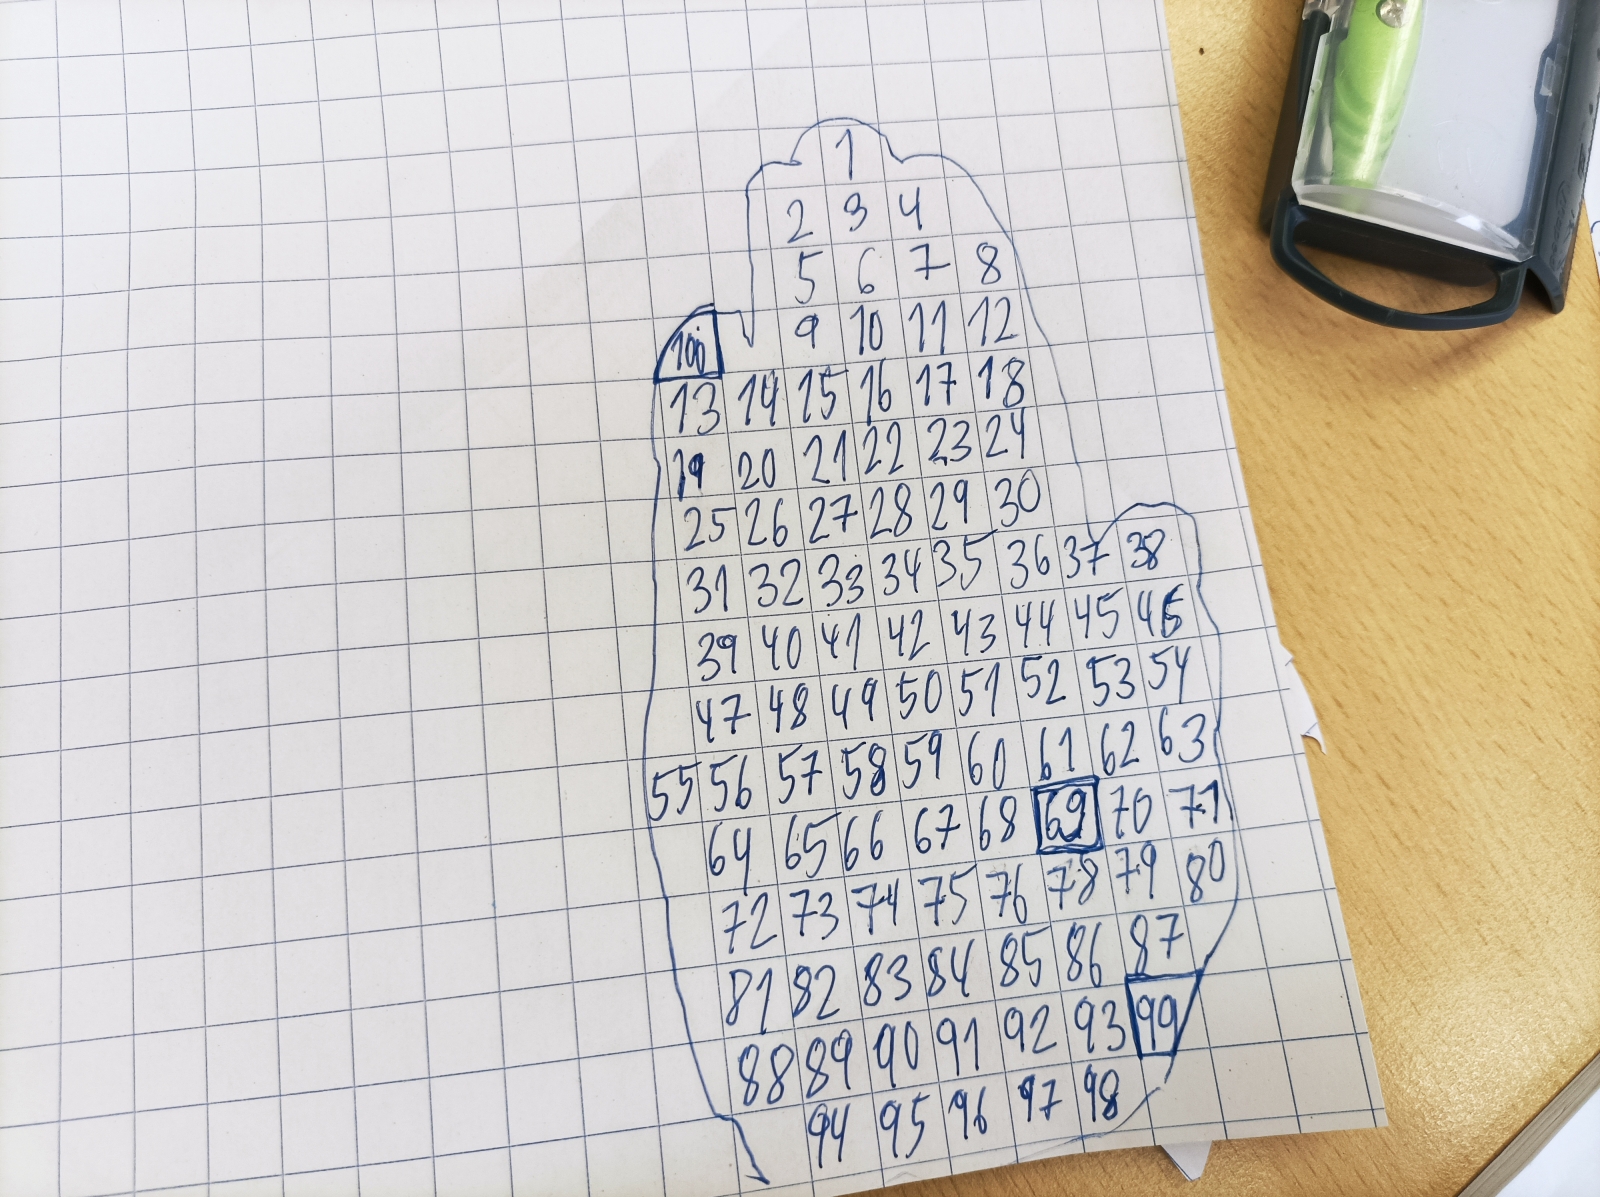 1
2 3 4
5 6 7 8
100 9 10 11 12
13 14 15 16 17 18
19 20 21 22 23 24
25 26 27 28 29 30
31 32 33 34 35 36 37 38
39 40 41 42 43 44 45 46
47 48 49 50 51 52 53 54
55 56 57 58 59 60 61 62 63
64 65 66 67 68 69 70 71
72 73 74 75 76 78 79 80
81 82 83 84 85 86 87
88 89 90 91 92 93 99
94 95 96 97 98